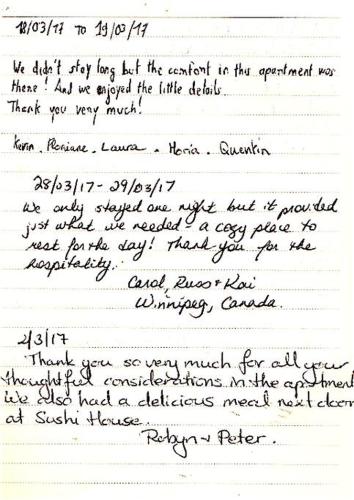 18/03/17 TO 19/03/17
We didn't stay long but the comfort in this apartment was
there! And we enjoyed the little details.
Thank you very much!
Kevin. Floriane. Laura. Maria. Quentin
28/03/17 - 29/03/17
We only stayed one night but it provided
just what we needed - a cozy place to
rest for the day! Thank you for the
hospitality.
Carol, Russ + Kai
Winnipeg, Canada.
2/3/17
Thank you so very much for all your
thoughtful considerations in the apartment
We also had a delicious meal next door
at Sushi House.
Robyn + Peter.